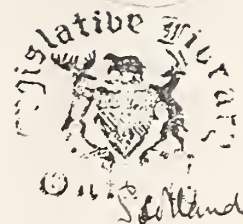 gislative Library
Ont
Scotland